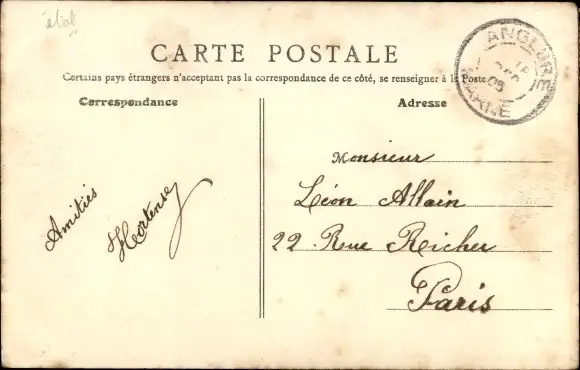 état
CARTE POSTALE
Certains pays étrangers n'acceptant pas la correspondance de ce côté, se renseigner à la Poste
Correspondance
Adresse
ANGLURE
MARNE
Monsieur
Léon Allain
22 Rue Richer
Paris
Amitiés
Hortense